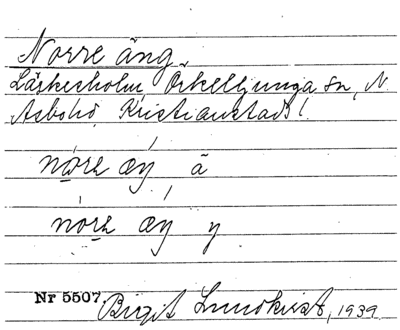 Norre äng
Läskesholm, Örkelljunga sn, N
Åsbo hd, Kristianstads l.
nórе æ̨ý ā
nòrе æ̨ý y
Nr 5507. Birgit Lundkvist, 1939